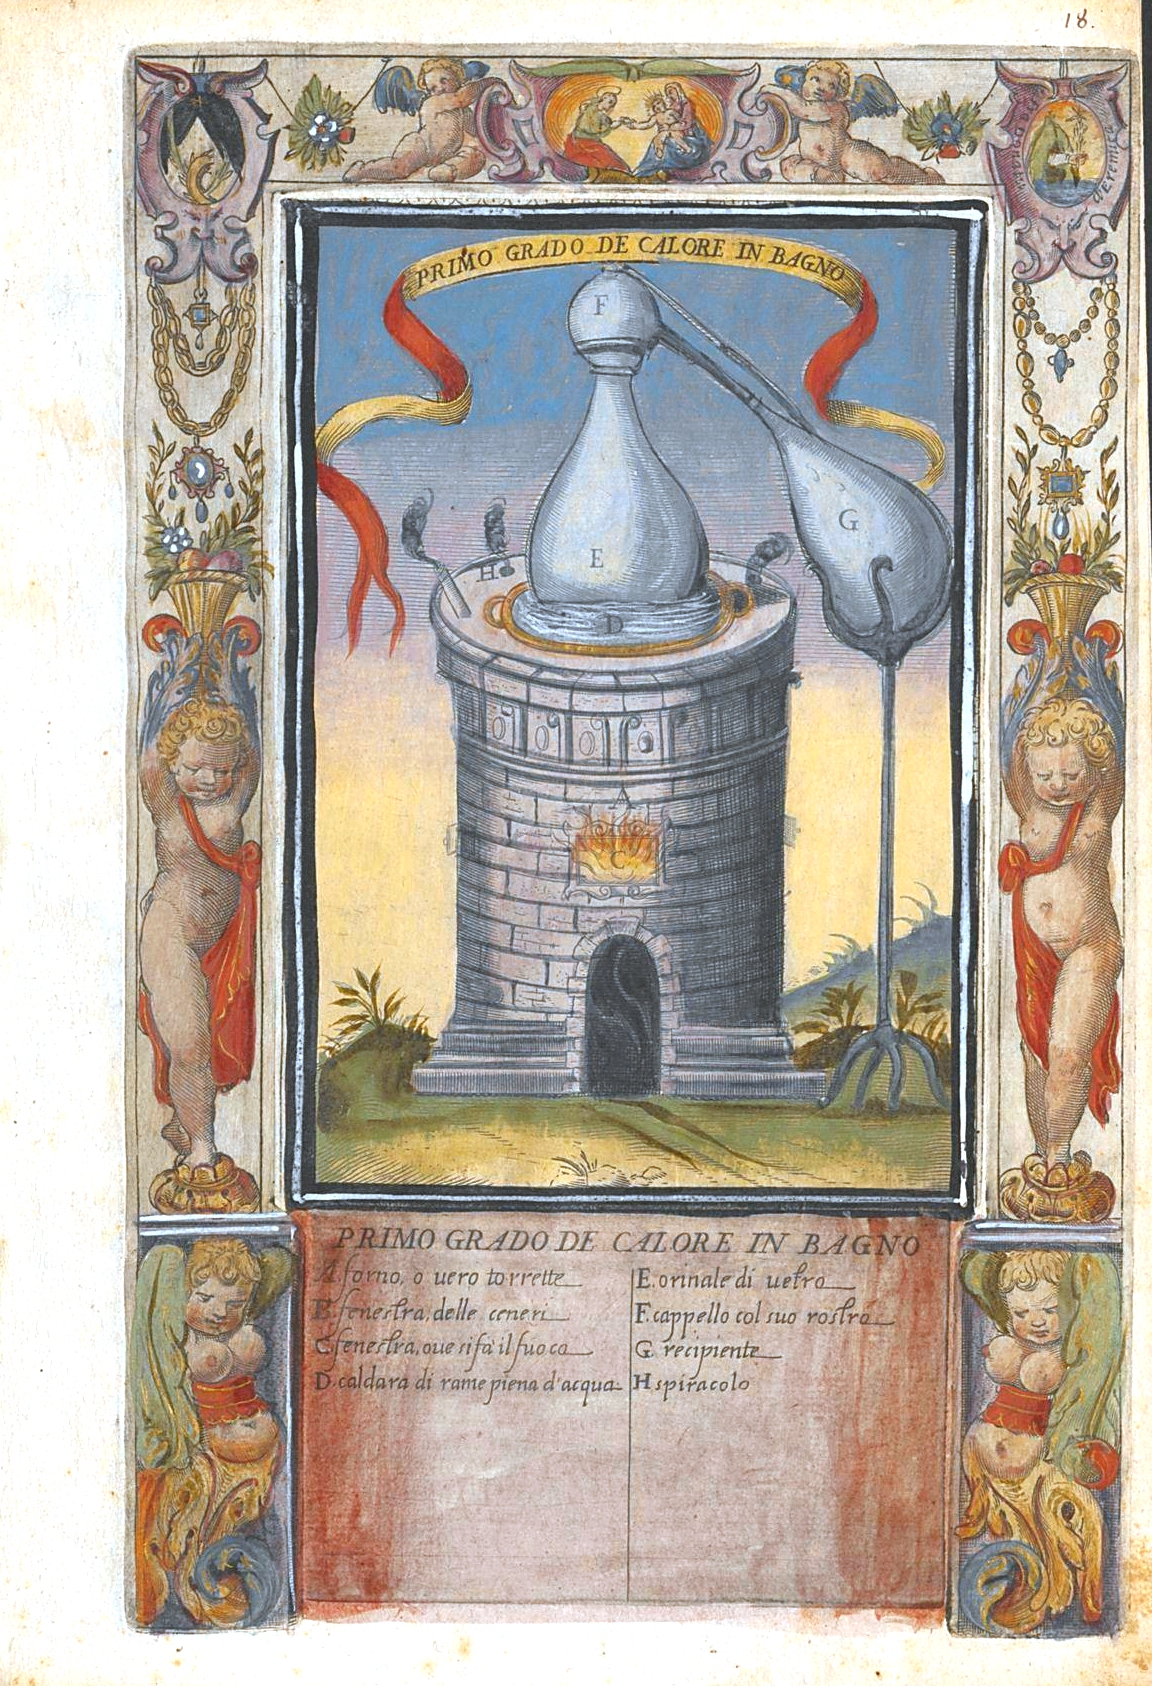 18.
PRIMO GRADO DE CALORE IN BAGNO
F
G
E
H
D
A
C
PRIMO GRADO DE CALORE IN BAGNO
A. forno, o uero torrette
B. fenestra, delle ceneri
C fenestra, oue si fà il fuoco
D. caldara di rame piena d'acqua
E. orinale di uetro
F. cappello col suo rostro
G. recipiente
H spiracolo